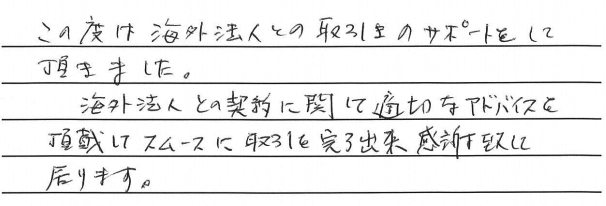 この度は海外法人との取引きのサポートをして
頂きました。
海外法人との契約に関して適切なアドバイスを
頂戴してスムースに取引を完了出来感謝致して
居ります。